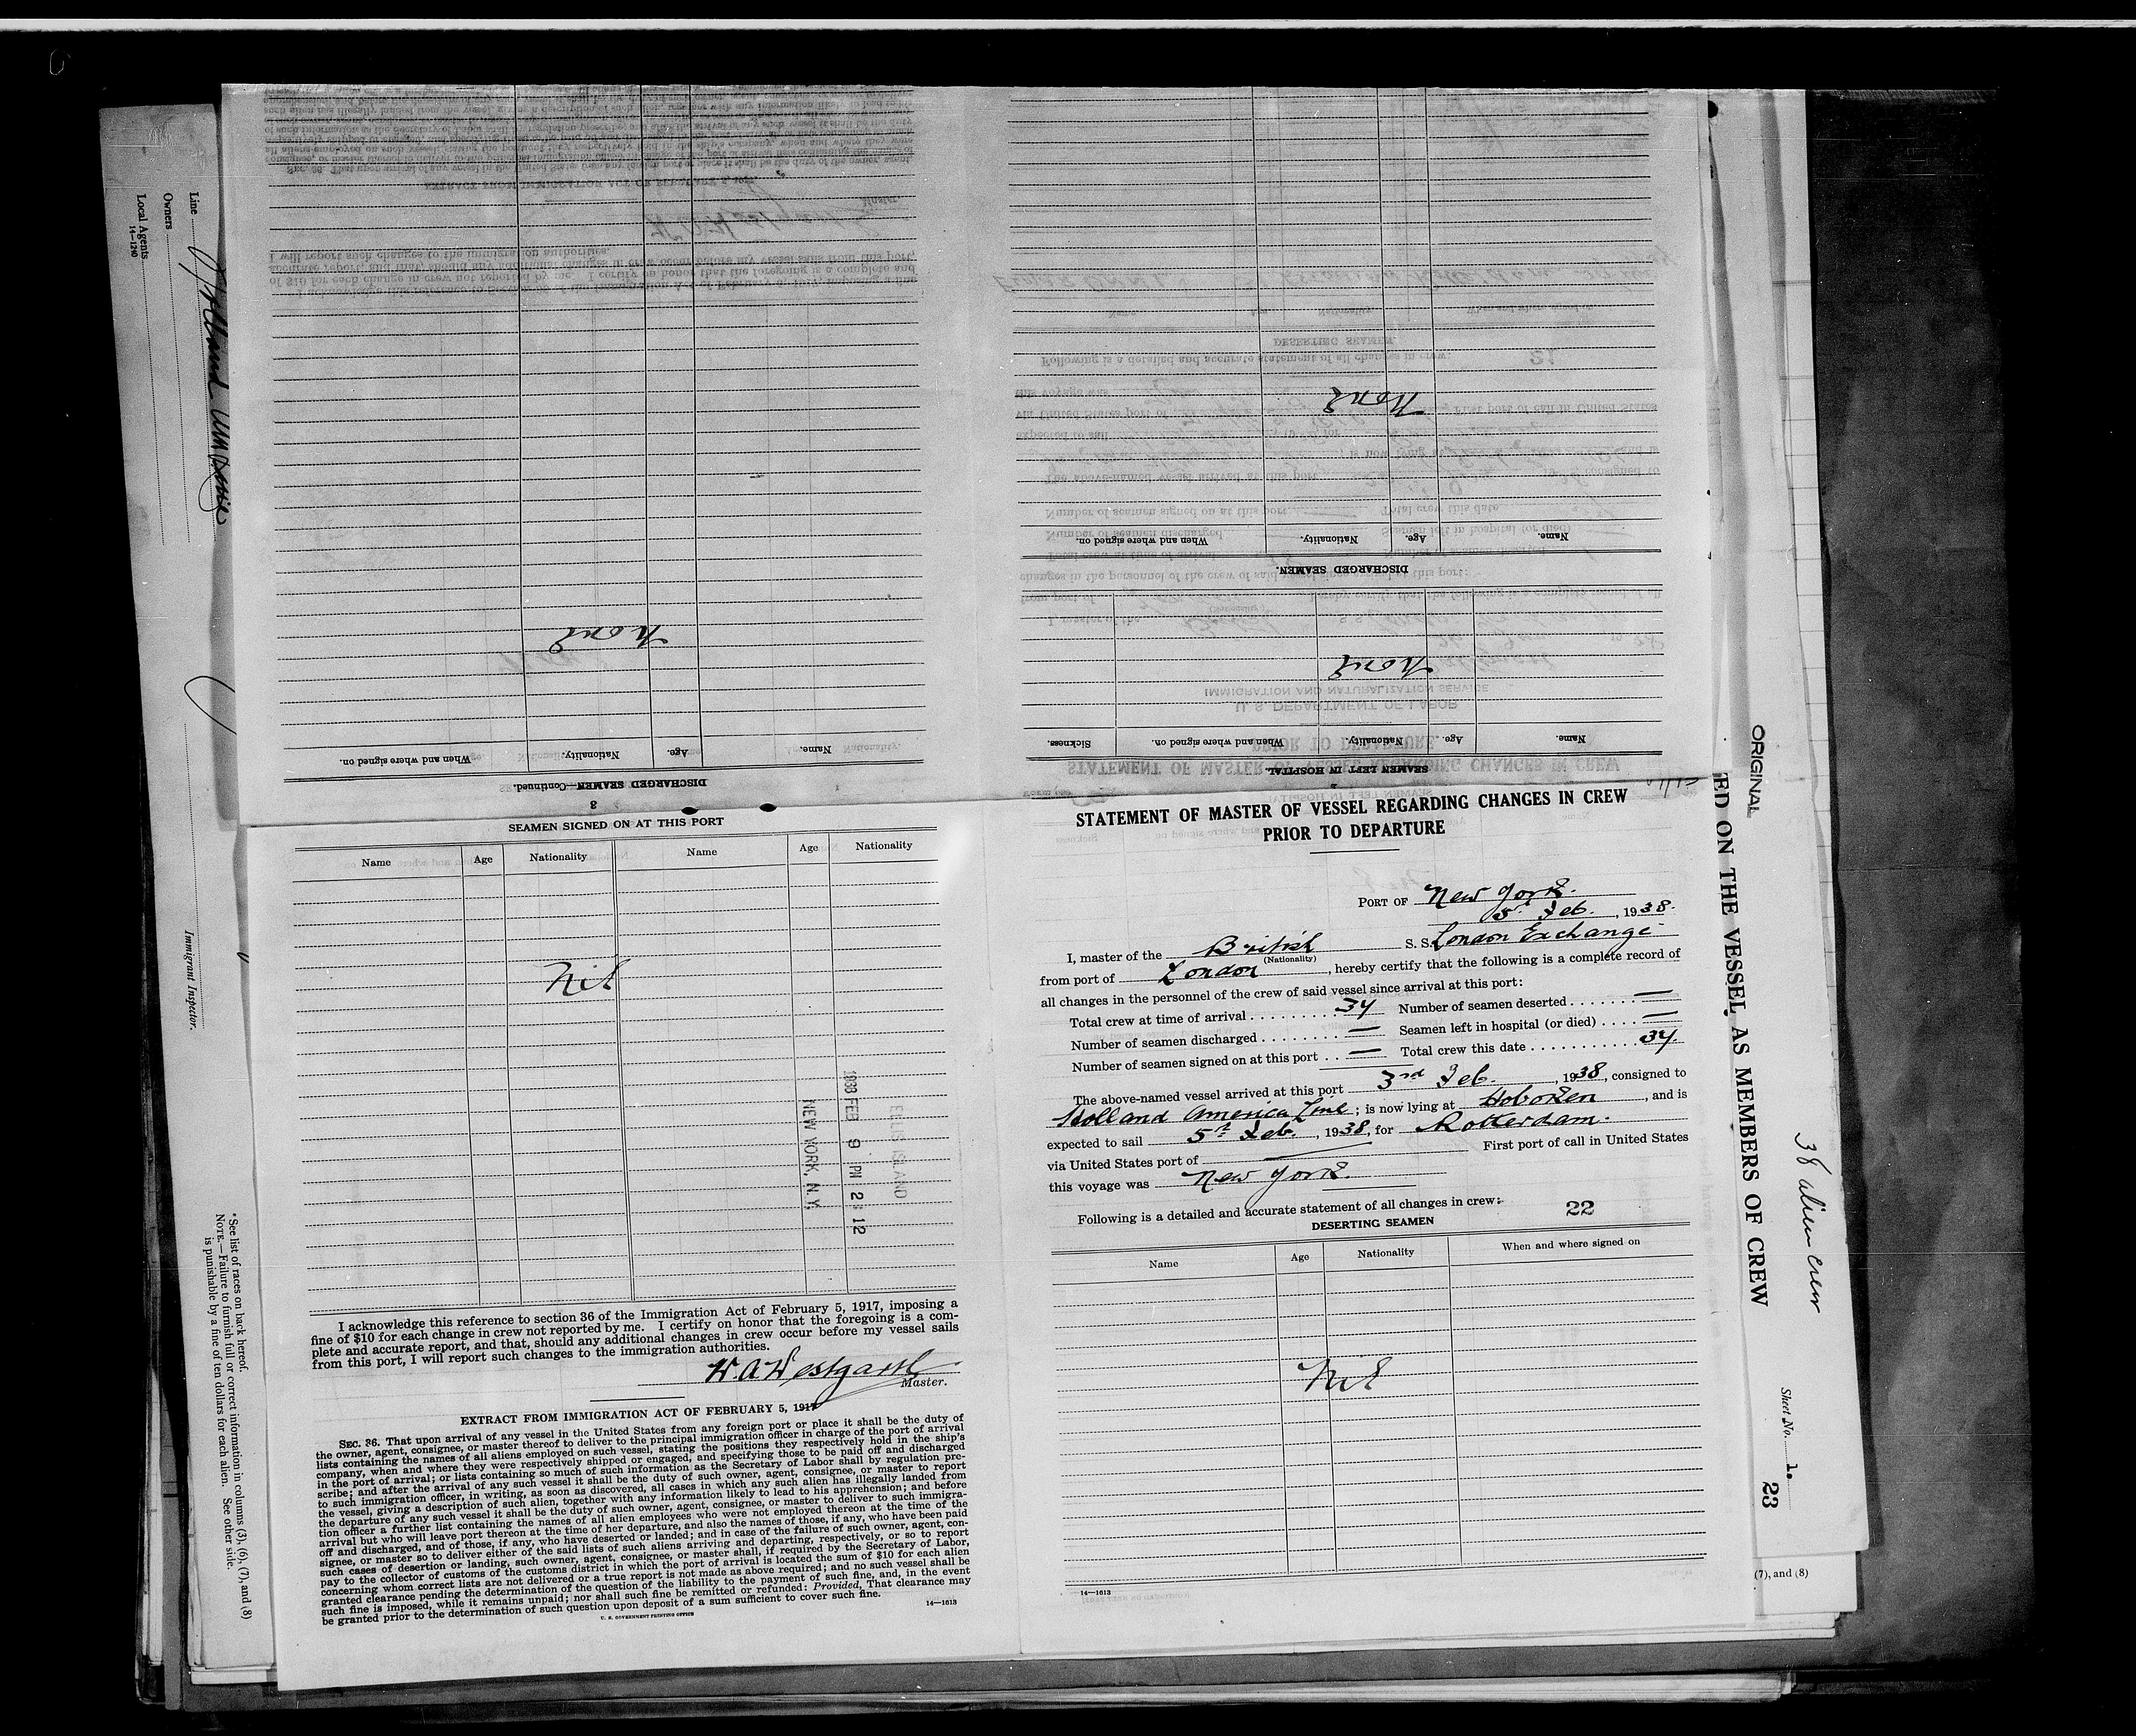 Line
Owners
Local Agents
14—1240
Immigrant Inspector.
*See list of races on back hereof.
NOTE.—Failure to furnish full or correct information in columns (3), (6), (7), and (8)
is punishable by a fine of ten dollars for each alien. See other side.
None
When and where signed on.
Nationality.
Age.
Name.
DISCHARGED SEAMEN—Continued.
3
None
When and where signed on.
Nationality.
Age.
Name.
DISCHARGED SEAMEN.
None
Sickness.
When and where signed on.
Nationality.
Age.
Name.
SEAMEN LEFT IN HOSPITAL
SEAMEN SIGNED ON AT THIS PORT
Name Age Nationality Name Age Nationality
Nil
ELLIS ISLAND
1938 FEB 9 PM 2 12
NEW YORK, N.Y.
I acknowledge this reference to section 36 of the Immigration Act of February 5, 1917, imposing a
fine of $10 for each change in crew not reported by me. I certify on honor that the foregoing is a com-
plete and accurate report, and that, should any additional changes in crew occur before my vessel sails
from this port, I will report such changes to the immigration authorities.
W. A. Westgarth
Master.
EXTRACT FROM IMMIGRATION ACT OF FEBRUARY 5, 1917
SEC. 36. That upon arrival of any vessel in the United States from any foreign port or place it shall be the duty of
the owner, agent, consignee, or master thereof to deliver to the principal immigration officer in charge of the port of arrival
lists containing the names of all aliens employed on such vessel, stating the positions they respectively hold in the ship's
company, when and where they were respectively shipped or engaged, and specifying those to be paid off and discharged
in the port of arrival; or lists containing so much of such information as the Secretary of Labor shall by regulation pre-
scribe; and after the arrival of any such vessel it shall be the duty of such owner, agent, consignee, or master to report
to such immigration officer, in writing, as soon as discovered, all cases in which any such alien has illegally landed from
the vessel, giving a description of such alien, together with any information likely to lead to his apprehension; and before
the departure of any such vessel it shall be the duty of such owner, agent, consignee, or master to deliver to such immigra-
tion officer a further list containing the names of all alien employees who were not employed thereon at the time of the
arrival but who will leave port thereon at the time of her departure, and also the names of those, if any, who have been paid
off and discharged, and of those, if any, who have deserted or landed; and in case of the failure of such owner, agent, con-
signee, or master so to deliver either of the said lists of such aliens arriving and departing, respectively, or so to report
such cases of desertion or landing, such owner, agent, consignee, or master shall, if required by the Secretary of Labor,
pay to the collector of customs of the customs district in which the port of arrival is located the sum of $10 for each alien
concerning whom correct lists are not delivered or a true report is not made as above required; and no such vessel shall be
granted clearance pending the determination of the question of the liability to the payment of such fine, and, in the event
such fine is imposed, while it remains unpaid; nor shall such fine be remitted or refunded: Provided, That clearance may
be granted prior to the determination of such question upon deposit of a sum sufficient to cover such fine.
U. S. GOVERNMENT PRINTING OFFICE
14—1613
STATEMENT OF MASTER OF VESSEL REGARDING CHANGES IN CREW
PRIOR TO DEPARTURE
PORT OF New York.
5th Feb., 1938.
I, master of the British S. S. London Exchange
(Nationality)
from port of London, hereby certify that the following is a complete record of
all changes in the personnel of the crew of said vessel since arrival at this port:
Total crew at time of arrival 34 Number of seamen deserted —
Number of seamen discharged — Seamen left in hospital (or died) —
Number of seamen signed on at this port — Total crew this date 34.
The above-named vessel arrived at this port 3rd Feb., 1938, consigned to
Holland America Line; is now lying at Hoboken, and is
expected to sail 5th Feb., 1938, for Rotterdam.
via United States port of — First port of call in United States
this voyage was New York.
Following is a detailed and accurate statement of all changes in crew:
22
DESERTING SEAMEN
Name Age Nationality When and where signed on
Nil
14—1613
ORIGINAL
ED ON THE VESSEL AS MEMBERS OF CREW
38 alien crew
Sheet No. 1.
23
(7), and (8)